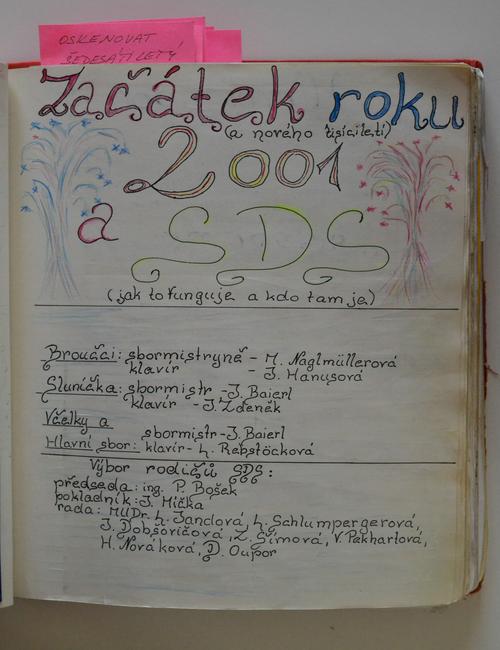 OSKENOVAT
ŠEDESÁTILETÝ
Začátek roku
(a nového tisíciletí)
2001
a SDS
(jak to funguje a kdo tam je)
Broučci: sbormistryně - M. Naglmüllerová
klavír - J. Hanusová
Sluníčka: sbormistr - J. Baierl
klavír - J. Zdeněk
Včelky a
sbormistr - J. Baierl
Hlavní sbor: klavír - L. Rebstöcková
Výbor rodičů SDS:
předseda: ing. P. Bošek
pokladník: J. Mička
rada: MUDr. L. Jandová, L. Schlumpergerová,
J. Dobsovičová, Z. Šímová, V. Pekhartová,
H. Nováková, D. Oupor